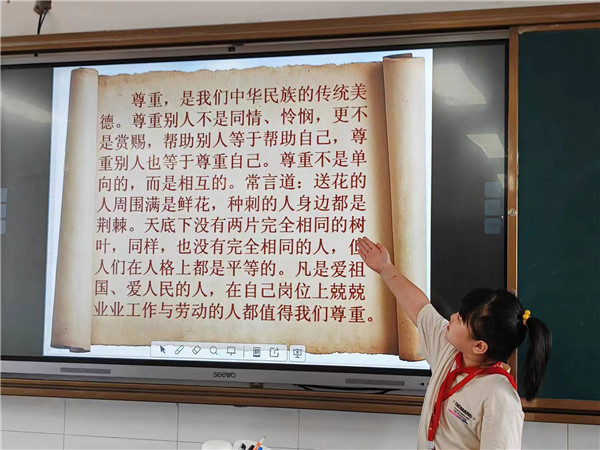 尊重，是我们中华民族的传统美
德。尊重别人不是同情、怜悯，更不
是赏赐，帮助别人等于帮助自己，尊
重别人也等于尊重自己。尊重不是单
向的，而是相互的。常言道：送花的
人周围满是鲜花，种刺的人身边都是
荆棘。天底下没有两片完全相同的树
叶，同样，也没有完全相同的人，但
人们在人格上都是平等的。凡是爱祖
国、爱人民的人，在自己岗位上兢兢
业业工作与劳动的人都值得我们尊重。
seewo